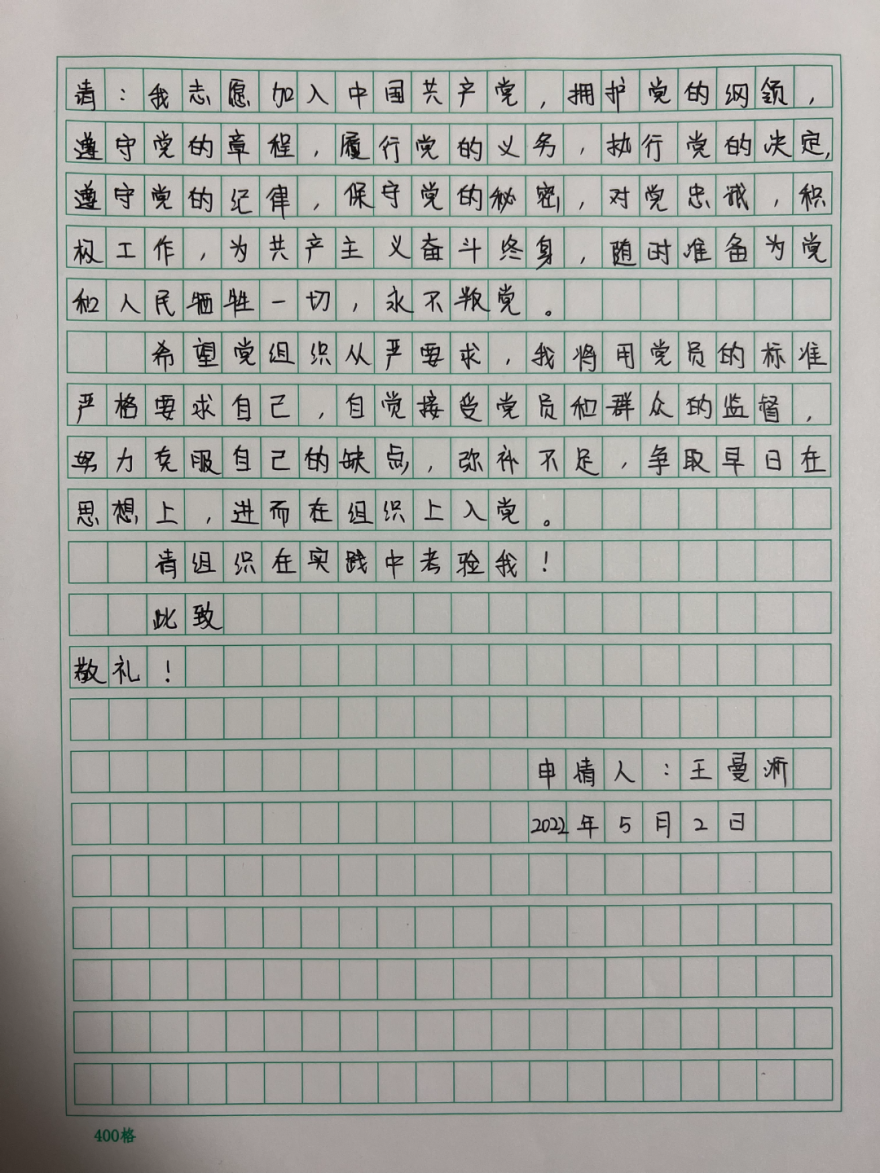 请：我志愿加入中国共产党，拥护党的纲领，
遵守党的章程，履行党的义务，执行党的决定，
遵守党的纪律，保守党的秘密，对党忠诚，积
极工作，为共产主义奋斗终身，随时准备为党
和人民牺牲一切，永不叛党。
希望党组织从严要求，我将用党员的标准
严格要求自己，自觉接受党员和群众的监督，
努力克服自己的缺点，弥补不足，争取早日在
思想上，进而在组织上入党。
请组织在实践中考验我！
此致
敬礼！
申请人：王曼淅
2022年5月2日
400格